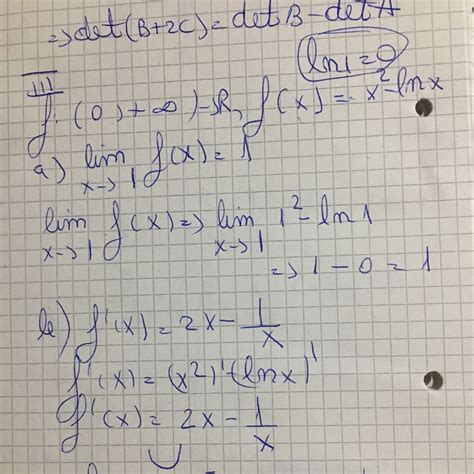 => det(B+2C) = det B - det A
ln1 = 0
III
f: (0, +∞) → R, f(x) = x² - lnx
a) lim f(x) = 1
x→1
lim f(x) => lim 1² - ln1
x→1 x→1
=> 1 - 0 = 1
b) f'(x) = 2x - 1/x
f'(x) = (x²)' - (lnx)'
f'(x) = 2x - 1/x